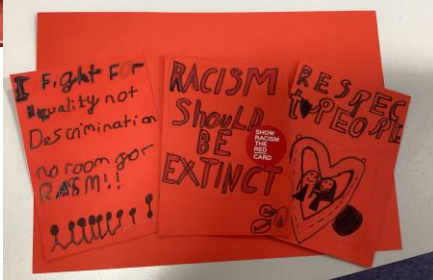 I Fight For
Equality not
Descrimination
no room for
RASM!!
RACISM
Should
BE
EXTINCT
SHOW
RACISM
THE
RED
CARD
RESPEC
PEOPlE